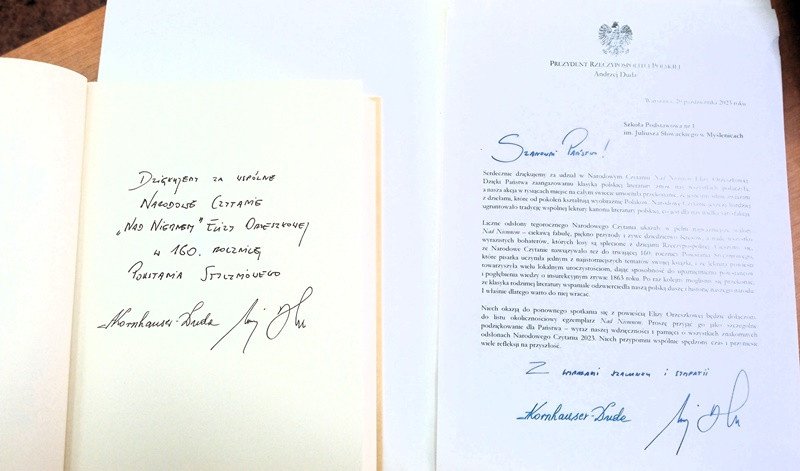 Dziękujemy za wspólne
Narodowe Czytanie
„Nad Niemnem” Elizy Orzeszkowej
w 160. rocznicę
Powstania Styczniowego
Kornhauser-Duda
PREZYDENT RZECZYPOSPOLITEJ POLSKIEJ
Andrzej Duda
Warszawa, 20 2023 roku
Szkoła Podstawowa nr 1
im. Juliusza Słowackiego w Myślenicach
Szanowni Państwo!
Serdecznie dziękujemy za udział w Narodowym Czytaniu Nad Niemnem Elizy Orzeszkowej.
Dzięki Państwa zaangażowaniu klasyka polskiej literatury
a nasza akcja w tysiącach miejsc na całym świecie
dziełami, które od pokoleń kształtują wyobraźnię Polaków. Narodowe Czytanie
ugruntowało tradycję wspólnej lektury kanonu literatury polskiej
Liczne odsłony tegorocznego Narodowego Czytania ukazały w pełni
Nad Niemnem – ciekawą fabułę, piękno przyrody i
wyrazistych bohaterów, których losy są splecione z dziejami Rzeczypospolitej.
że Narodowe Czytanie nawiązywało też do trwającej 160. rocznicy Powstania Styczniowego,
które pisarka uczyniła jednym z najistotniejszych tematów swojej książki, a
towarzyszyła wielu lokalnym uroczystościom, dając sposobność do upamiętnienia powstańców
i pogłębienia wiedzy o insurekcyjnym zrywie 1863 roku. Po raz kolejny mogliśmy się przekonać,
że klasyka rodzimej literatury wspaniale odzwierciedla naszą polską duszę i historię naszego narodu
I właśnie dlatego warto do niej wracać.
Niech okazją do ponownego spotkania się z powieścią Elizy Orzeszkowej będzie dołączony
do listu okolicznościowy egzemplarz Nad Niemnem. Proszę przyjąć go jako szczególne
podziękowanie dla Państwa – wyraz naszej wdzięczności i pamięci o wszystkich znakomitych
odsłonach Narodowego Czytania 2023. Niech przypomina wspólnie spędzony czas i przyniesie
wiele refleksji na przyszłość.
Z wyrazami szacunku i sympatii
Kornhauser-Duda